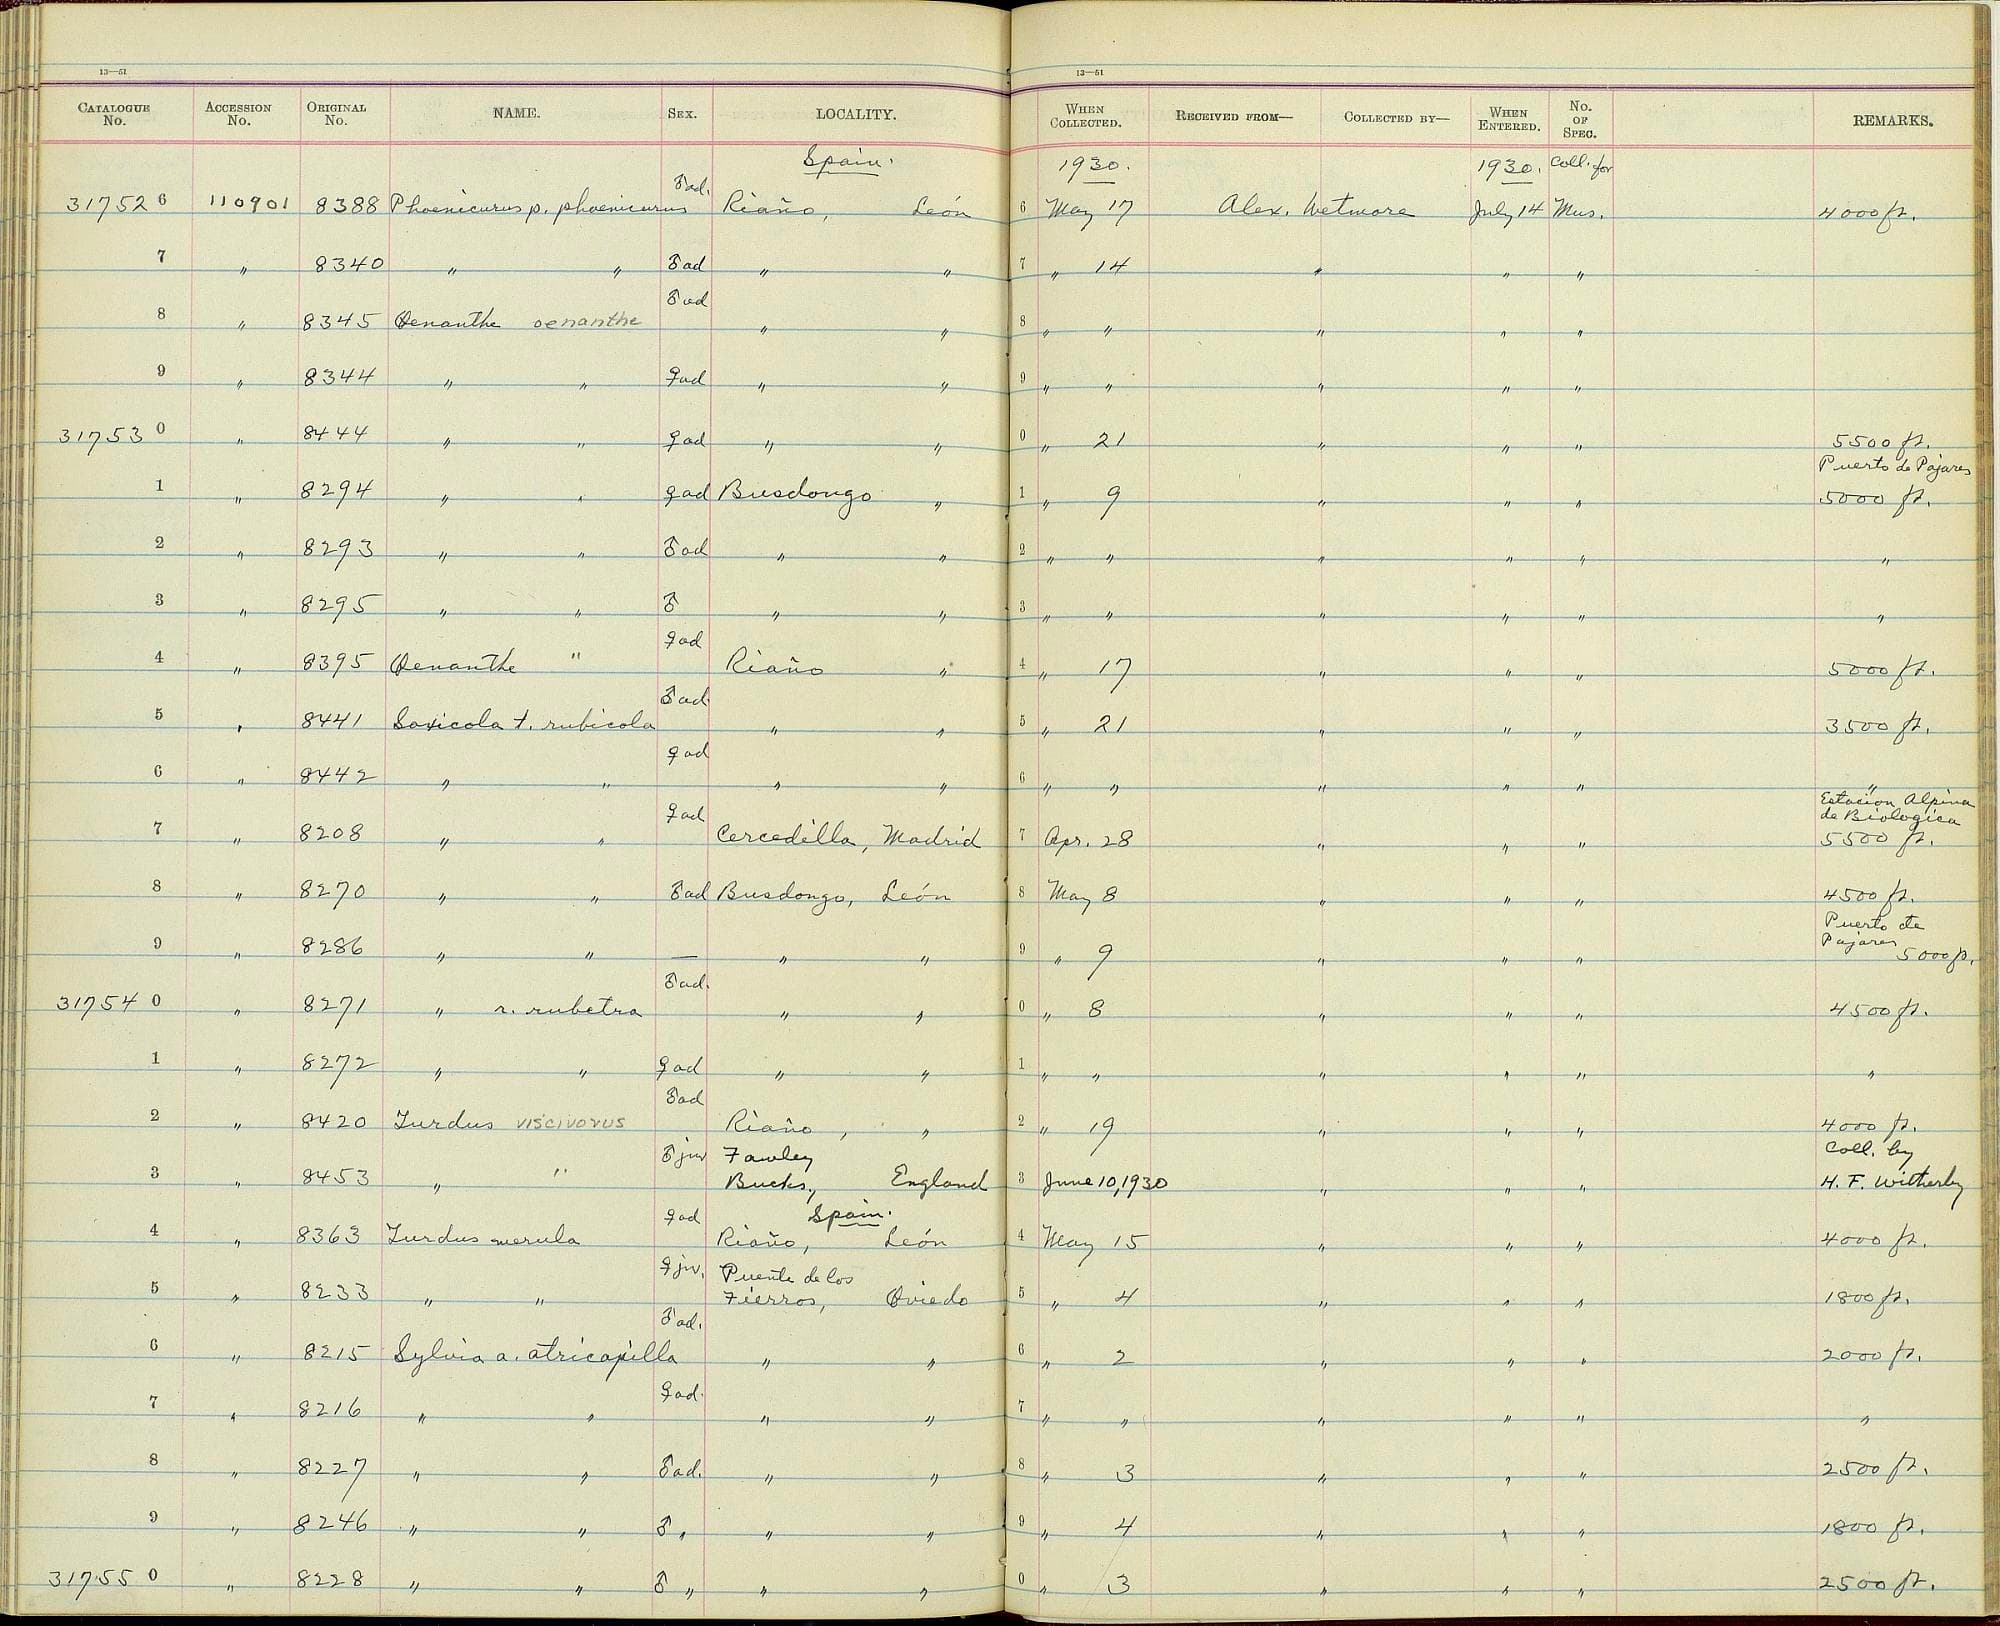 13—51
13—51
CATALOGUE No. ACCESSION No. ORIGINAL No. NAME. SEX. LOCALITY. WHEN COLLECTED. RECEIVED FROM— COLLECTED BY— WHEN ENTERED. No. OF SPEC. REMARKS.
Spain. 1930. 1930. Coll. for
317526 110901 8388 Phoenicurus p. phoenicurus ♂ad. Riaño, León 6 May 17 Alex. Wetmore July 14 Mus. 4000 ft.
7 " 8340 " " ♂ad " " 7 " 14 " " "
8 " 8345 Oenanthe oenanthe ♂ad " " 8 " " " " "
9 " 8344 " " ♀ad " " 9 " " " " "
317530 " 8444 " " ♀ad " " 0 " 21 " " " 5500 ft.
Puerto de Pajares
1 " 8294 " " ♀ad Busdongo " 1 " 9 " " " 5000 ft.
2 " 8293 " " ♂ad " " 2 " " " " " "
3 " 8295 " " ♂ " " 3 " " " " " "
4 " 8395 Oenanthe " ♀ad Riaño " 4 " 17 " " " 5000 ft.
5 " 8441 Saxicola t. rubicola ♂ad. " " 5 " 21 " " " 3500 ft.
6 " 8442 " " ♀ad " " 6 " " " " " "
Estacion Alpina
de Biologica
7 " 8208 " " ♀ad Cercedilla, Madrid 7 Apr. 28 " " " 5500 ft.
8 " 8270 " " ♂ad Busdongo, León 8 May 8 " " " 4500 ft.
Puerto de
9 " 8286 " " — " " 9 " 9 " " " Pajares 5000 ft.
317540 " 8271 " r. rubetra ♂ad. " " 0 " 8 " " " 4500 ft.
1 " 8272 " " ♀ad " " 1 " " " " " "
2 " 8420 Turdus viscivorus ♂ad Riaño, " 2 " 19 " " " 4000 ft.
♂juv Fawley Coll. by
3 " 8453 " " Bucks., England 3 June 10, 1930 " " " H. F. Witherby
Spain.
4 " 8363 Turdus merula ♀ad Riaño, León 4 May 15 " " " 4000 ft.
♀juv. Puente de los
5 " 8233 " " Fierros, Oviedo 5 " 4 " " " 1800 ft.
6 " 8215 Sylvia a. atricapilla ♂ad. " " 6 " 2 " " " 2000 ft.
7 " 8216 " " ♀ad. " " 7 " " " " " "
8 " 8227 " " ♂ad. " " 8 " 3 " " " 2500 ft.
9 " 8246 " " ♂ " " " 9 " 4 " " " 1800 ft.
317550 " 8228 " " ♂ " " " 0 " 3 " " " 2500 ft.